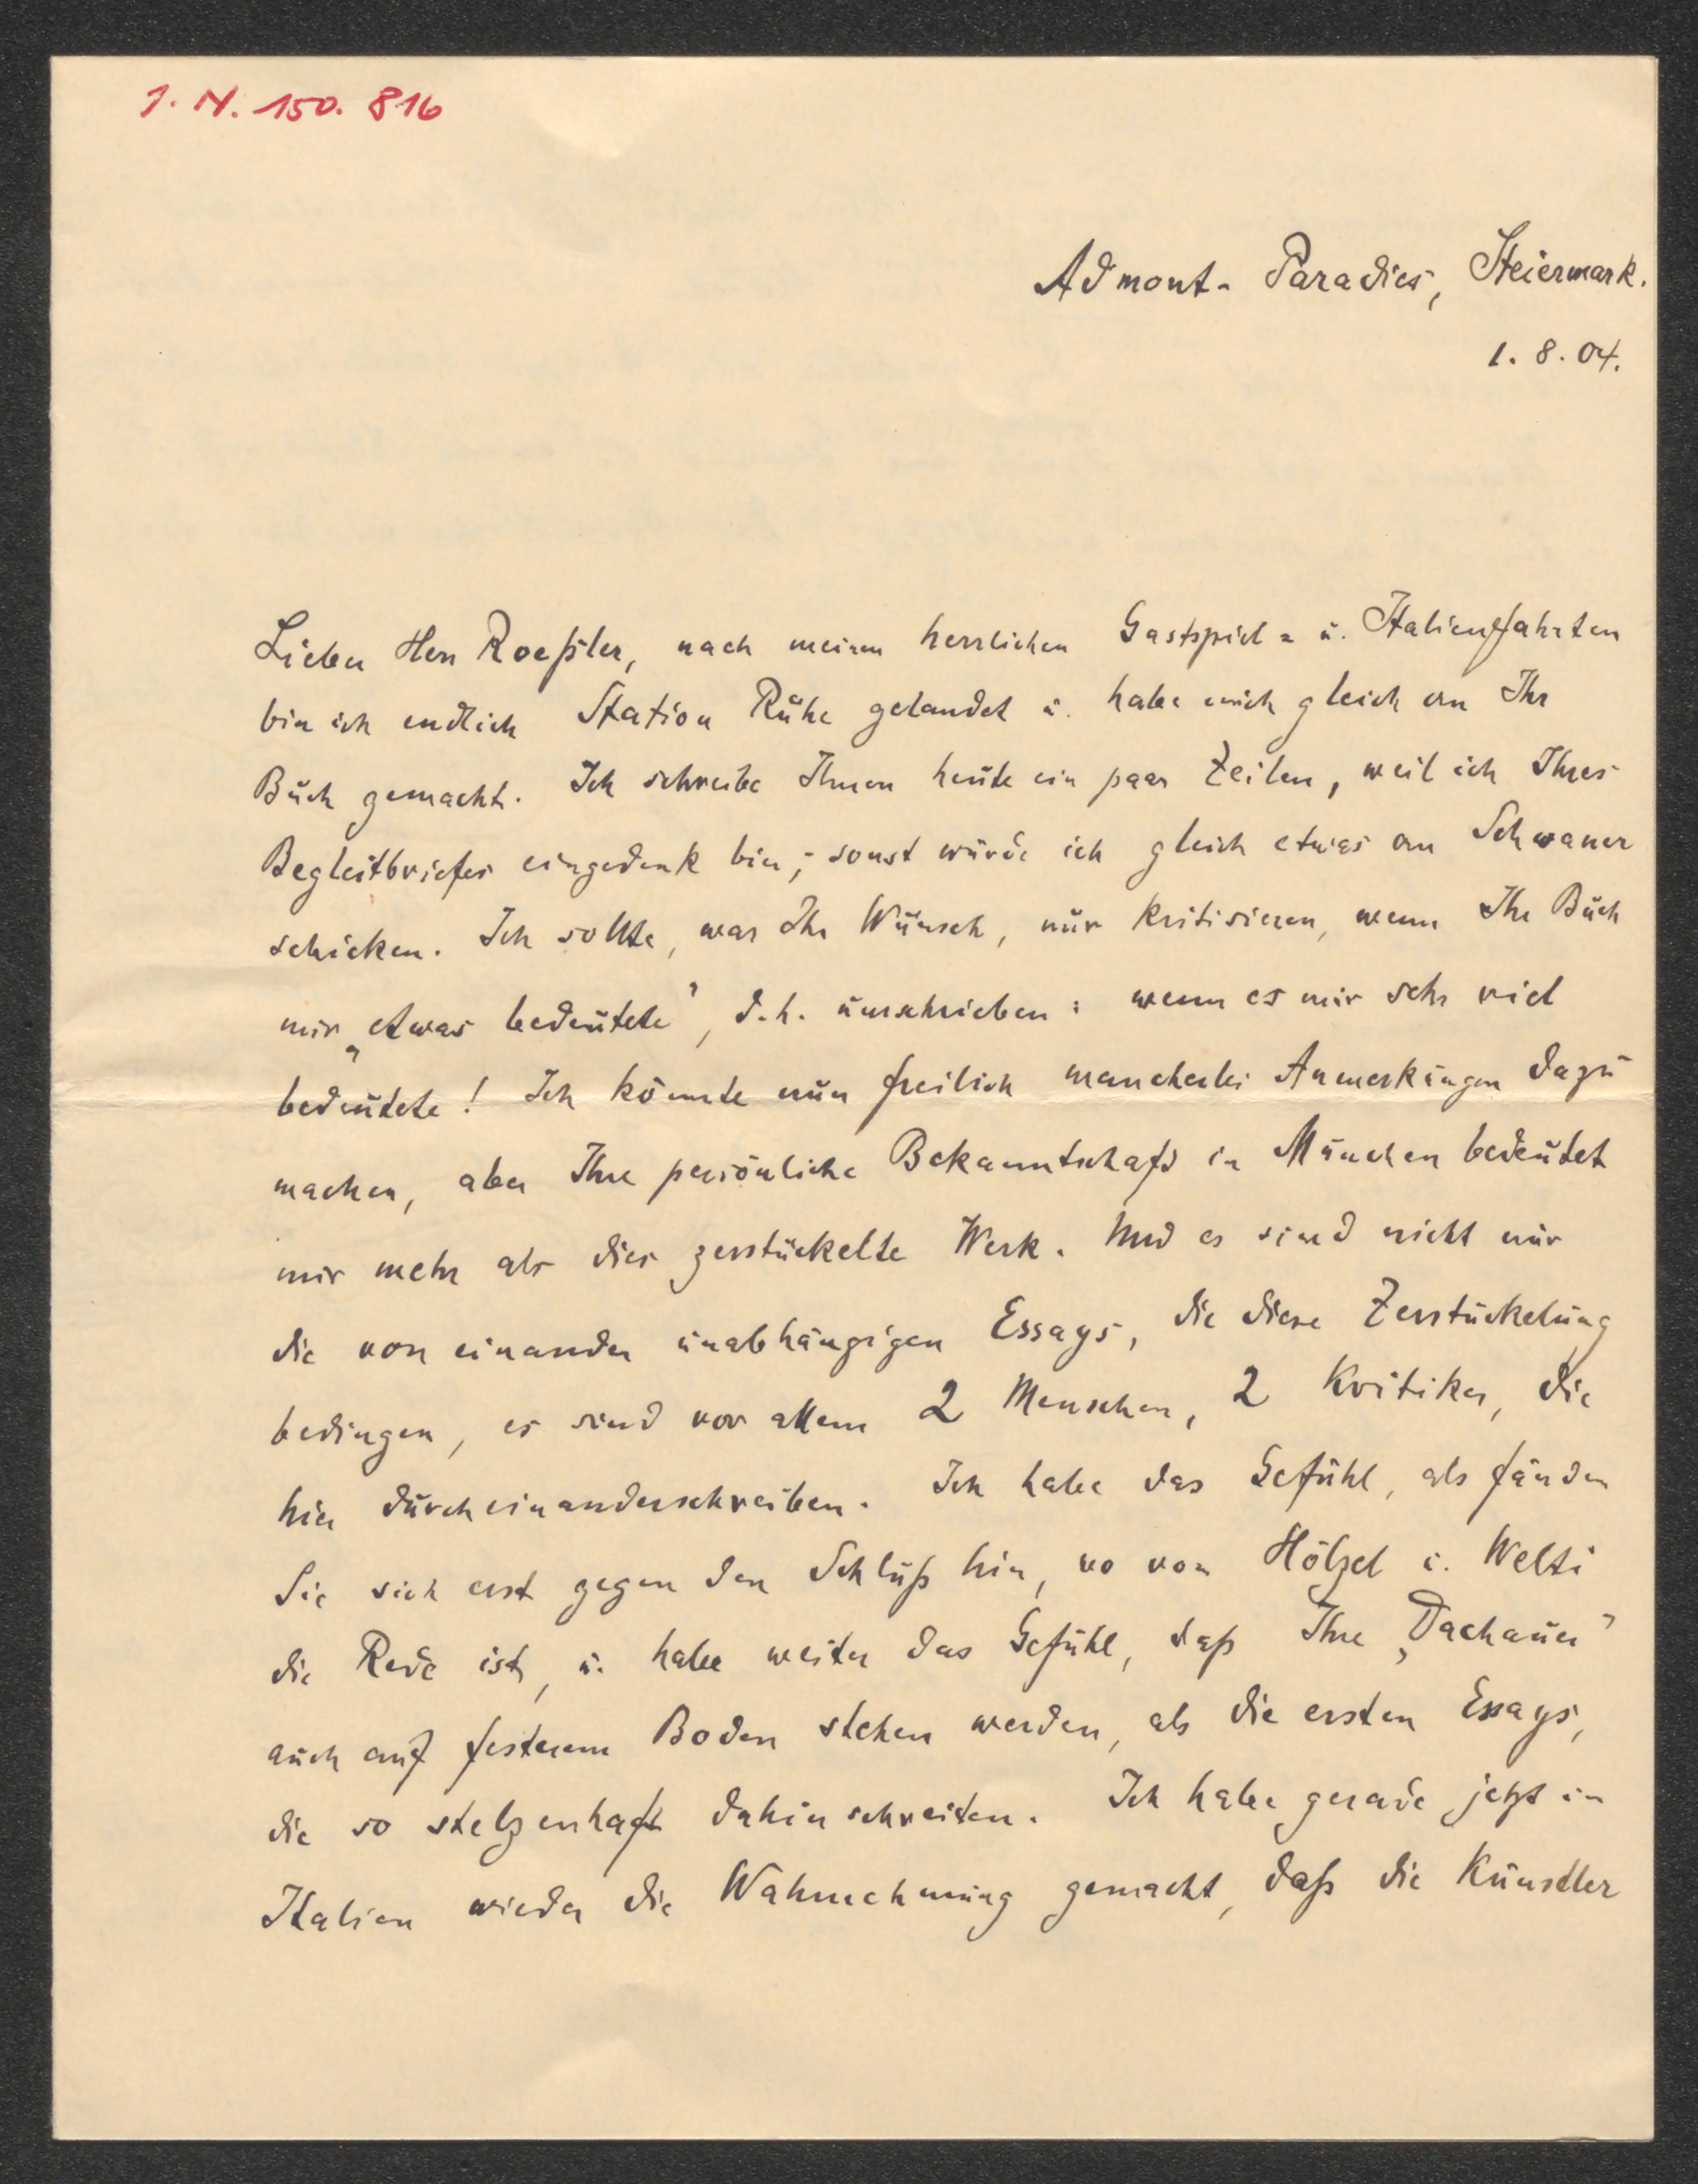 I. N. 150. 816
Admont-Paradies, Steiermark.
1. 8. 04.
Lieber Herr Roeßler, nach meinen herrlichen Gastspiel= u. Italienfahrten
bin ich endlich Station Ruhe gelandet u. habe mich gleich an Ihr
Buch gemacht. Ich schreibe Ihnen heute ein paar Zeilen, weil ich Ihres
Begleitbriefes eingedenk bin; sonst würde ich gleich etwas an Schwaner
schicken. Ich sollte, war Ihr Wunsch, nur kritisieren, wenn Ihr Buch
mir „etwas bedeutete", d.h. umschrieben: wenn es mir sehr viel
bedeutete! Ich könnte nun freilich mancherlei Anmerkungen dazu
machen, aber Ihre persönliche Bekanntschaft in München bedeutet
mir mehr als dies zerstückelte Werk. Und es sind nicht nur
die von einander unabhängigen Essays, die diese Zerstückelung
bedingen, es sind vor allem 2 Menschen, 2 Kritiker, die
hier durcheinanderschreiben. Ich habe das Gefühl, als fänden
Sie sich erst gegen den Schluß hin, wo von Hölzel u. Welti
die Rede ist, u. habe weiter das Gefühl, daß Ihre „Dachauer"
auch auf festerem Boden stehen werden, als die ersten Essays,
die so stelzenhaft dahinschreiten. Ich habe gerade jetzt in
Italien wieder die Wahrnehmung gemacht, daß die Künstler